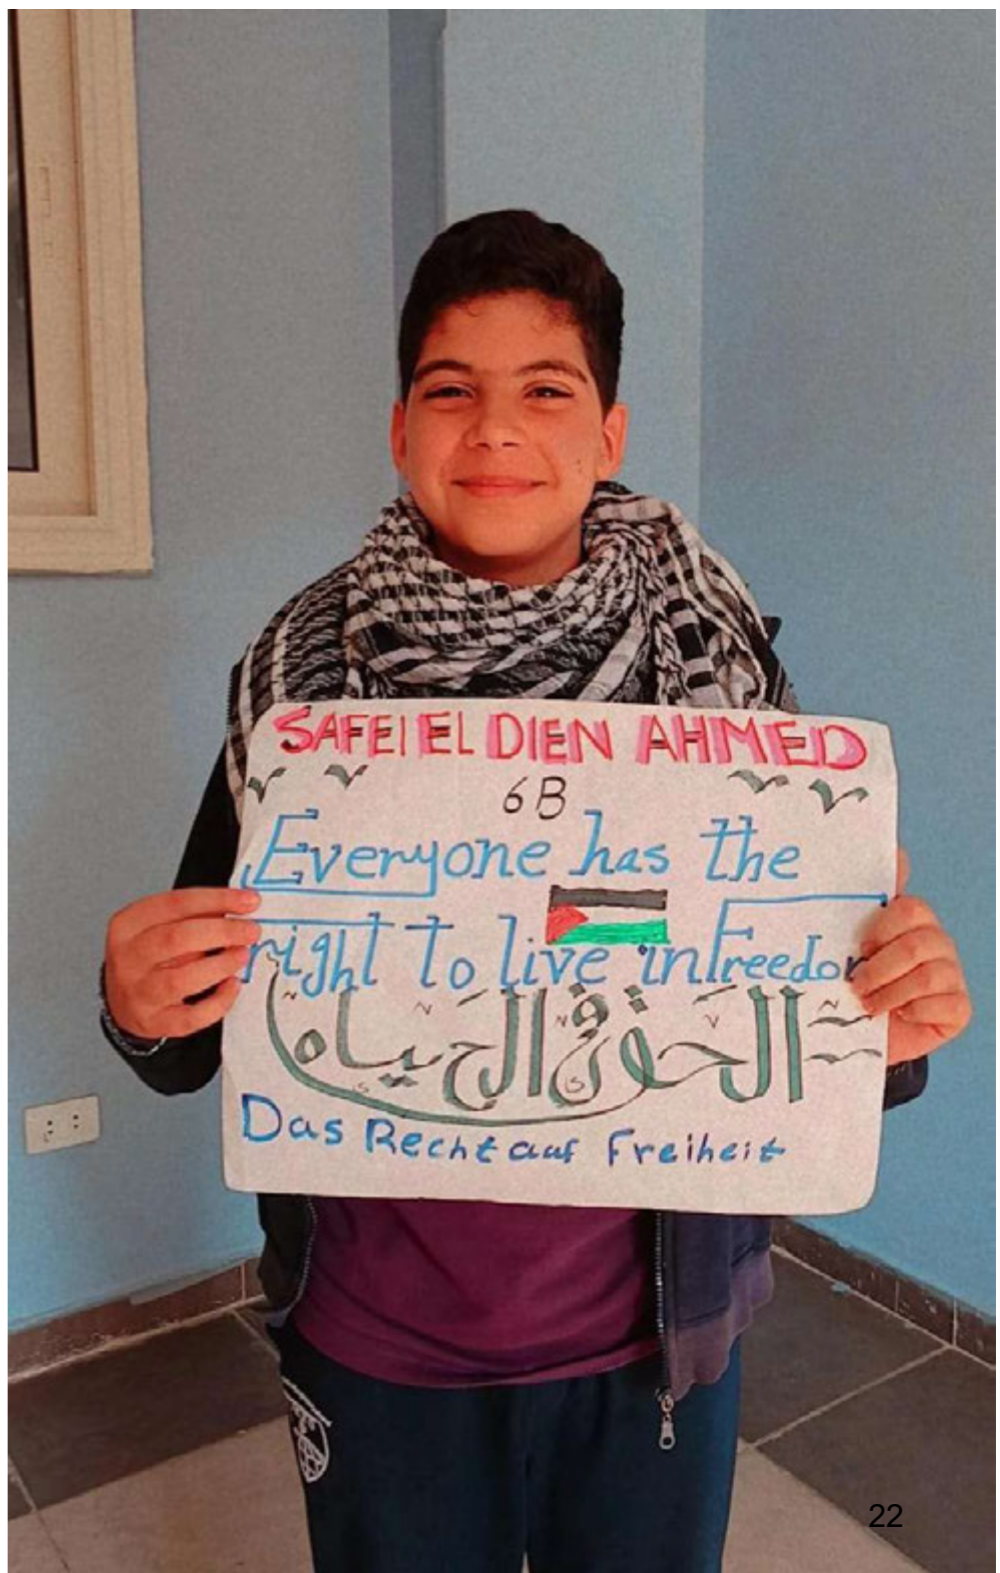 SAFEI EL DIEN AHMED
6B
Everyone has the
right to live in Freedom
الحق في الحياه
Das Recht auf Freiheit
22